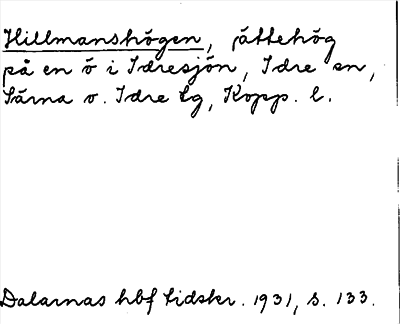 Hillmanshögen, ättehög
på en ö i Idresjön, Idre sn,
Särna o. Idre tg, Kopp. l.
Dalarnas hbf tidskr. 1931, s. 133.